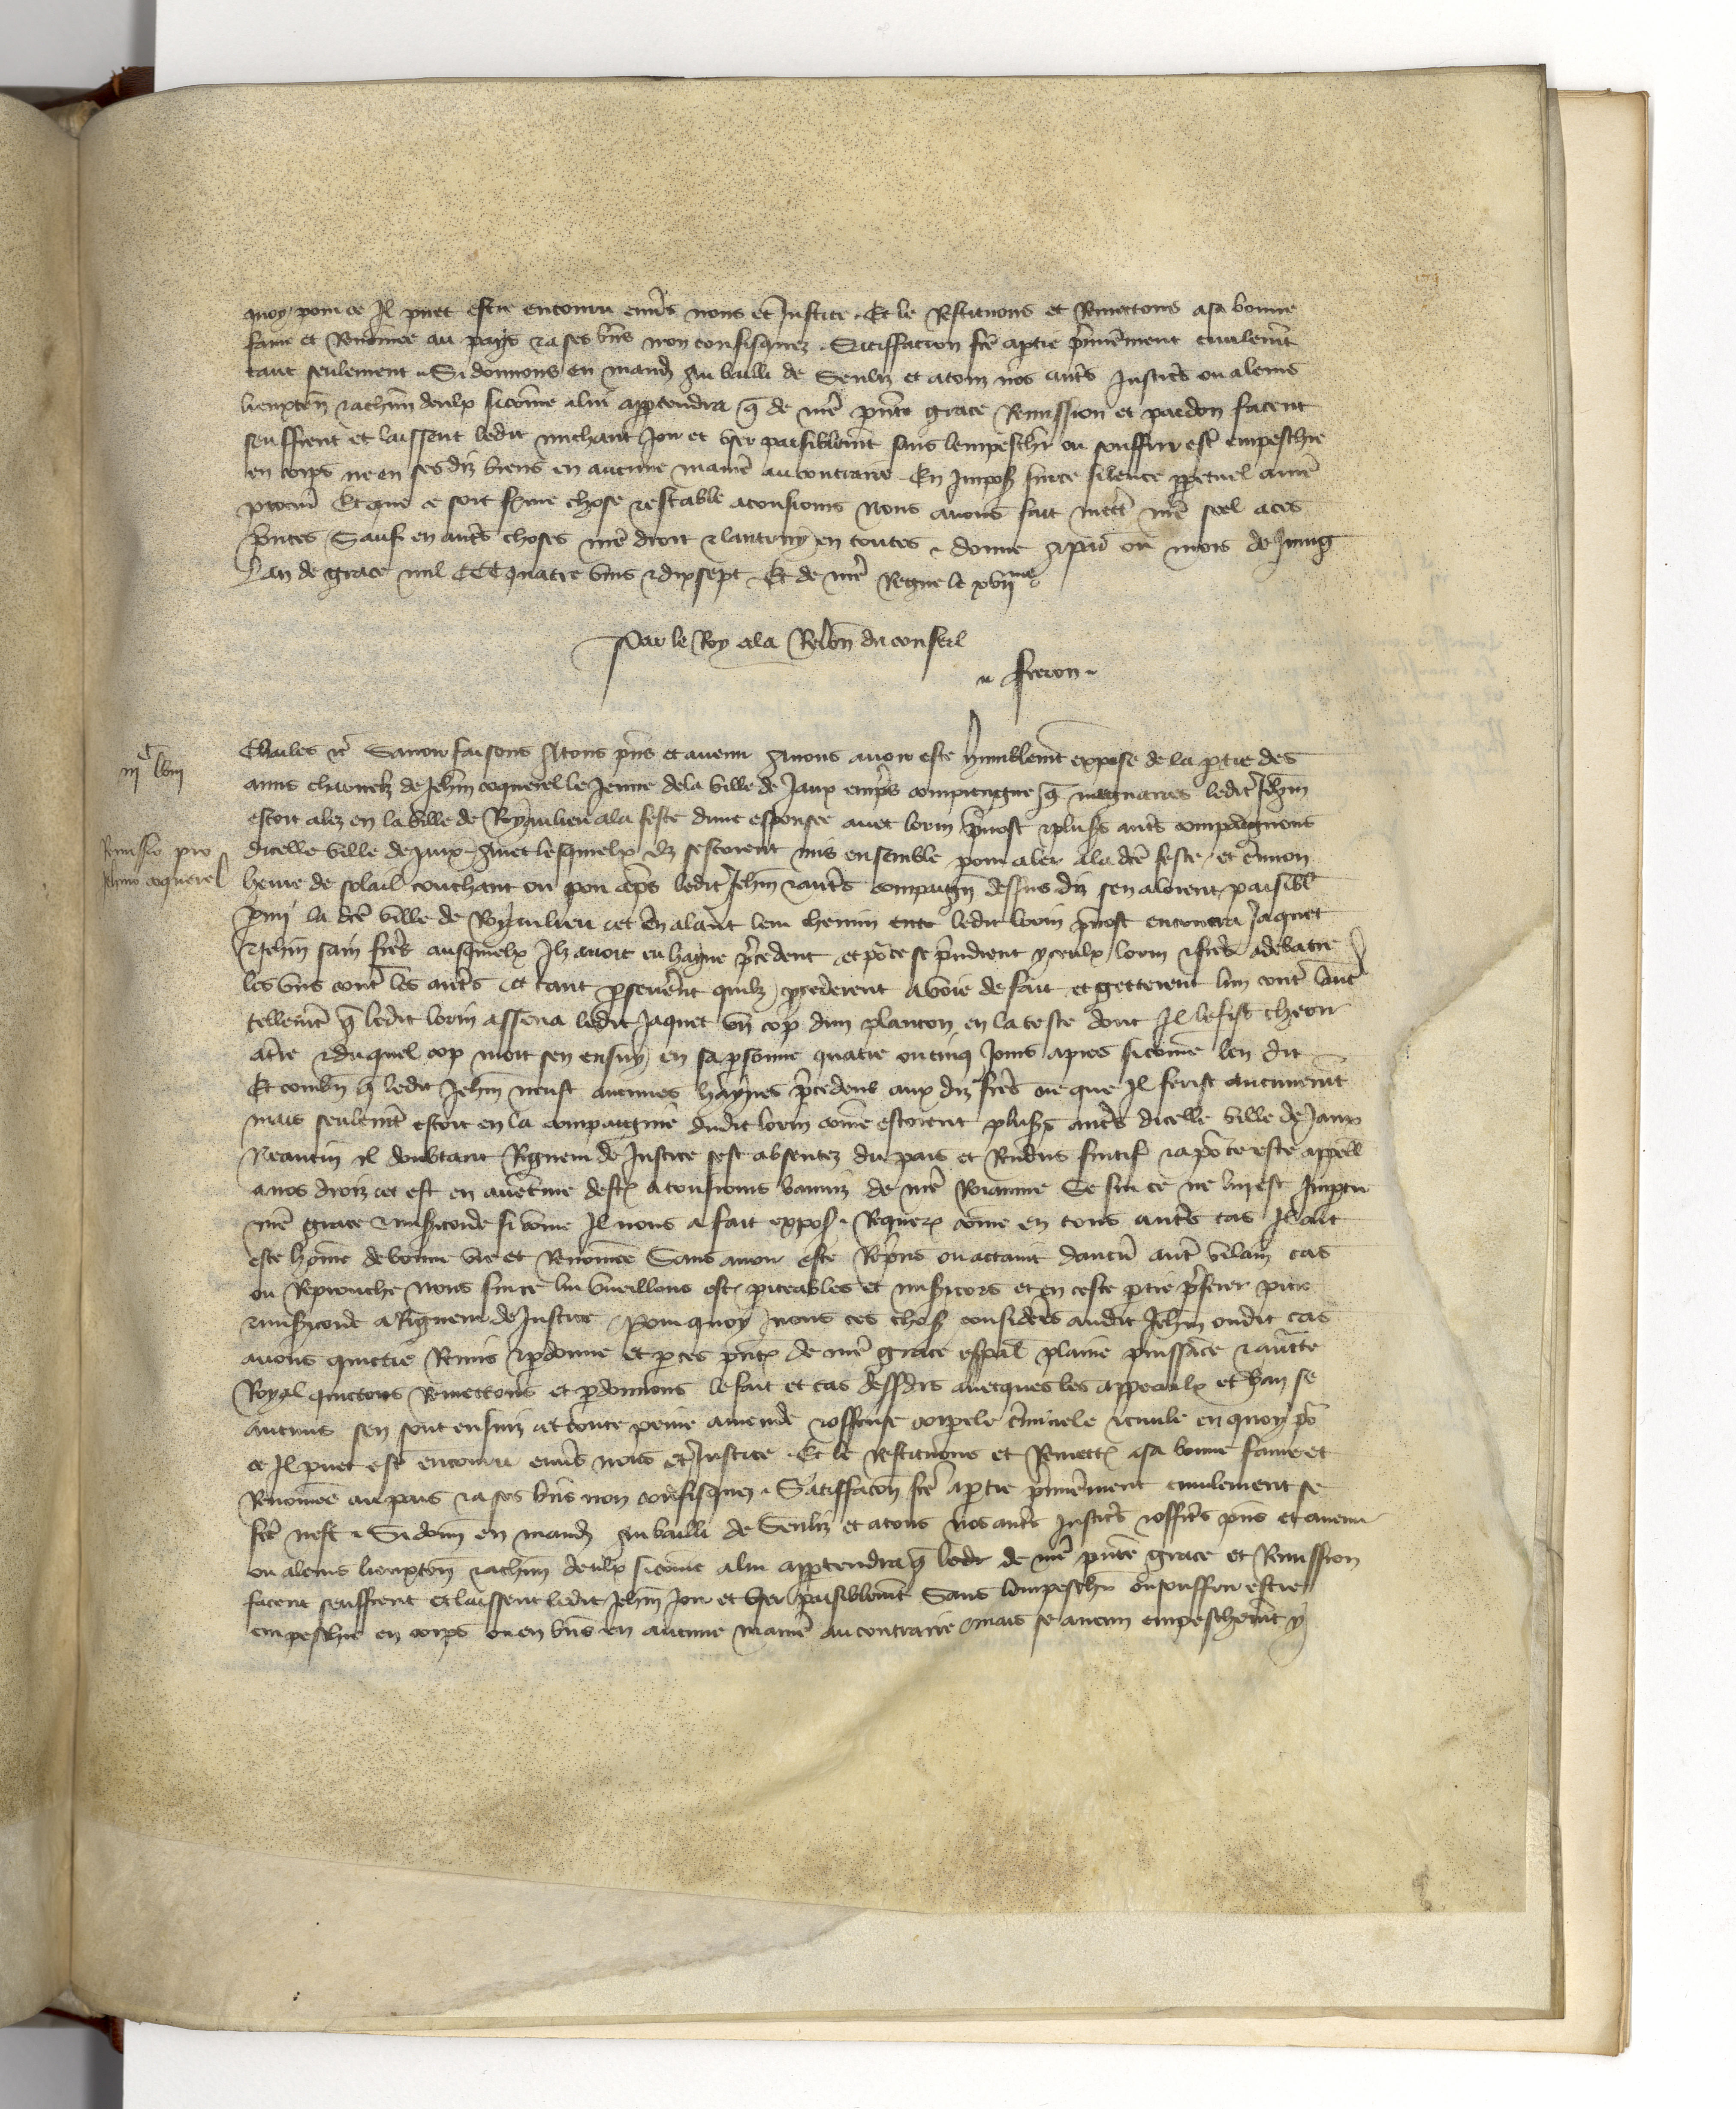 quoy pour ce Il puet estre encouru enuers nous et Justice. Et le Restituons et Remettons a sa bonne
fame et Renomee au pays et a ses biens non confisquez. Satisfacion fcte a ptie premierement ciuilement
tant seulement. Si donnons en mand Au bailli de Senliz et a touz nos autres Justiciers ou a leurs
lieuxten et a chun deulx sicome a lui apptendra q de nre pnte grace Remission et pardon facent
seuffrent et laissent ledit Jor et user paisiblemt sans lempescher ou souffrir estre empeschie
en corps ne en ses diz biens en aucune maniere au contraire. En Impost sur ce silence ppetuel a nre
procur Et que ce soit ferme chose et estable a tousiours Nous auons fait mettre nre seel a ces
pntes Sauf en autres choses nre droit et lautruy en toutes. donne A paris ou mois de Juing
Lan de grace mil CCC quatre vins et dix sept Et de nre Regne le xvij me
Par le Roy a la Relon du conseil
Freron
Charles etc Sauoir faisons A tous pns et auenir A nous auoir este humblemt expose de la ptie des
iijc lviij
amis charnelz de Jehin coquerel le Jeune de la ville de Jaux empres compiengne q nagueres ledit Jehin
estoit alez en la ville de Royaulieu a la feste dune espousee auec lorin preuost et plusrs autres compaignons
Remissio pro
Johne coquerel
dicelle ville de Jaux Auec lesquelx ilz sestoient mis ensemble pour aler a la dce feste, et enuiron
heure de solail couchant ou pou apres ledit Jehin et autres compaign dessus diz sen aloient paisibl
parmi la dce ville de Royaulieu et en alant leur chemin ledit lorin preuost encontra Jaquet
et Jehin sain freres ausquelx Ilz auoit eu hayne precedent et po ce se prindrent yceulx lorin et freres a debatre
les uns contre les autres et tant perseuerent quilz procederent a voie de fait et getterent lun contre laut
tellemt q ledit lorin assena ledit Jaquet un cop dun plancon en la teste dont Il le fist cheoir
a tre et duquel cop mort sen ensuy en sa personne quatre ou cinq Jours apres sicome len dit
Et combn q ledit Jehin neust aucunes haynes precedens aux diz freres ne que Il ferist aucunemt
mais seulemt estoit en la compaignie dudit lorin come estoient plusrs autres dicelle ville de Jaux
Neantm il doubtant Rigueur de Justice sest absentez du pais et Rendus fuitif et a po ce este appelle
a nos droiz et est en auenture destre a tousiours banniz de nre Roiaume Se sur ce ne luy est Impartie
nre grace et misericorde si come Il nous a fait exposer. Requer come en tous autres cas Il ait
este home de bonne vie et Renomee Sans auoir este Repris ou actaint daucun autre vilain cas
ou Reprouche Nous sur ce lui vueillons estre piteables et misericors et en ceste ptie preferer pitie
et misericorde a Rigueur de Justice Pour quoy nous ces choses considerees audit Jehin oudit cas
auons quictie Remis et pdonne et par ces pntes de nre grace espal plaine puissance et auctte
Royal quictons Remettons et pdonnons le fait et cas dessdis auecques les appeaulx et ban se
aucuns sen sont ensuiz et toute peine amende et offense corpele criminele et ciuile en quoy po
ce Il puet estre encouru enuers nous et Justice. Et le Restituons et Remettons a sa bonne fame et
Renomee au pais et a ses biens non confisquez. Satisfacon fcte a ptie premierement ciuilement se
fcte nest. Si donn en mand Au bailli de Senliz et a tous nos autres Justiciers et officiers pns et auenir
ou a leurs lieuxten et a chun deulx sicome a lui apptendra q de nre pnte grace et Remission
facent seuffrent et laissent ledit Jehin Jor et user paisiblemt Sans lempescher ou souffrir estre
empeschie en corps ou en biens en aucune maniere au contraire mais se aucun empeschemt y